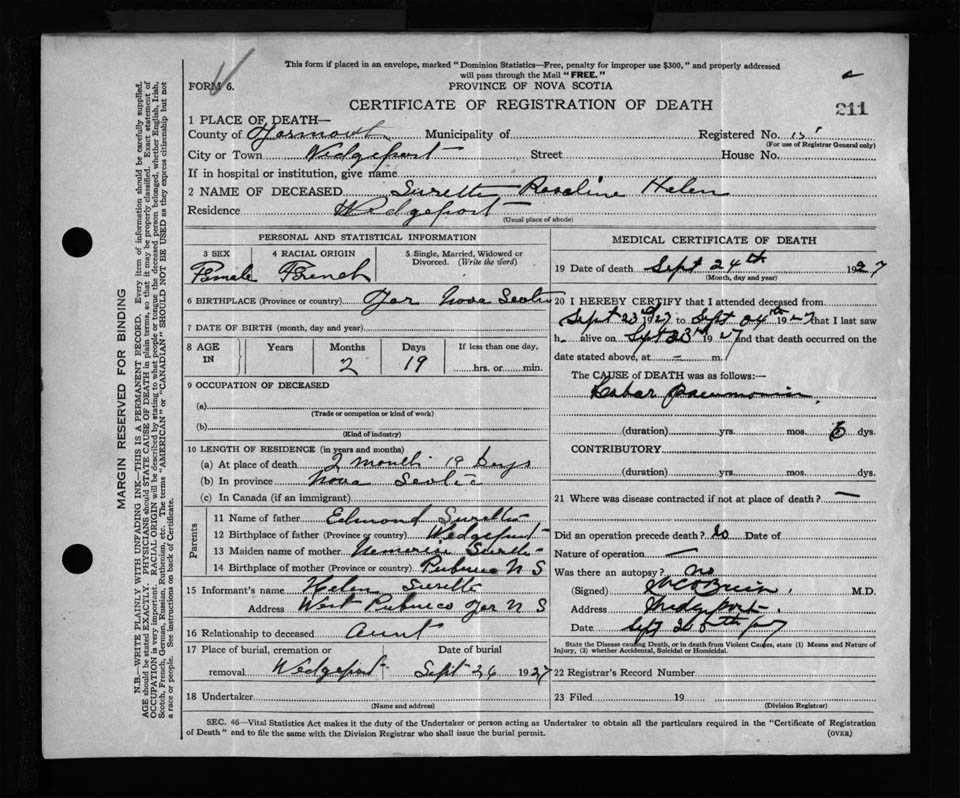 This form if placed in an envelope, marked "Dominion Statistics—Free, penalty for improper use $300," and properly addressed
will pass through the Mail "FREE."
FORM 6.
PROVINCE OF NOVA SCOTIA
CERTIFICATE OF REGISTRATION OF DEATH
211
1 PLACE OF DEATH—
County of Yarmouth Municipality of Registered No.
(For use of Registrar General only)
City or Town Wedgeport Street House No.
If in hospital or institution, give name
2 NAME OF DECEASED Surette Rosaline Helen
Residence Wedgeport
(Usual place of abode)
PERSONAL AND STATISTICAL INFORMATION
3 SEX 4 RACIAL ORIGIN 5 Single, Married, Widowed or Divorced. (Write the word)
Female French
6 BIRTHPLACE (Province or country) Yar Nova Scotia
7 DATE OF BIRTH (month, day and year)
8 AGE IN Years Months Days If less than one day,
2 19 hrs. or min.
9 OCCUPATION OF DECEASED
(a)
(Trade or occupation or kind of work)
(b)
(Kind of industry)
10 LENGTH OF RESIDENCE (in years and months)
(a) At place of death 2 months 19 days
(b) In province Nova Scotia
(c) In Canada (if an immigrant)
Parents
11 Name of father Edmond Surette
12 Birthplace of father (Province or country) Wedgeport
13 Maiden name of mother Surette
14 Birthplace of mother (Province or country) Pubnico N S
15 Informant's name Helen Surette
Address West Pubnico Yar N S
16 Relationship to deceased Aunt
17 Place of burial, cremation or Date of burial
removal Wedgeport Sept 26 1927
18 Undertaker
(Name and address)
MEDICAL CERTIFICATE OF DEATH
19 Date of death Sept 24th 1927
(Month, day and year)
20 I HEREBY CERTIFY that I attended deceased from
Sept 23rd 1927 to Sept 24th 1927 that I last saw
h alive on Sept 23rd 1927 and that death occurred on the
date stated above, at – m.
The CAUSE of DEATH was as follows:—
Lobar pneumonia.
(duration) yrs. mos. dys.
CONTRIBUTORY
(duration) yrs. mos. dys.
21 Where was disease contracted if not at place of death? —
Did an operation precede death? No Date of
Nature of operation —
Was there an autopsy? No
(Signed) M.D.
Address Wedgeport.
Date Sept
State the Disease causing Death, or in death from Violent Causes, state (1) Means and Nature of
Injury, (2) whether Accidental, Suicidal or Homicidal.
22 Registrar's Record Number
23 Filed 19
(Division Registrar)
SEC. 46—Vital Statistics Act makes it the duty of the Undertaker or person acting as Undertaker to obtain all the particulars required in the "Certificate of Registration
of Death" and to file the same with the Division Registrar who shall issue the burial permit. (OVER)
MARGIN RESERVED FOR BINDING
N.B.—WRITE PLAINLY WITH UNFADING INK—THIS IS A PERMANENT RECORD. Every item of information should be carefully supplied.
AGE should be stated EXACTLY. PHYSICIANS should STATE CAUSE OF DEATH in plain terms, so that it may be properly classified. Exact statement of
OCCUPATION is very important. RACIAL ORIGIN will be described by stating to what people or tongue the deceased person belonged, whether English, Irish,
Scotch, French, German, Russian, Ruthenian, etc. The terms "AMERICAN" or "CANADIAN" SHOULD NOT BE USED as they express citizenship but not
a race or people. See instructions on back of Certificate.